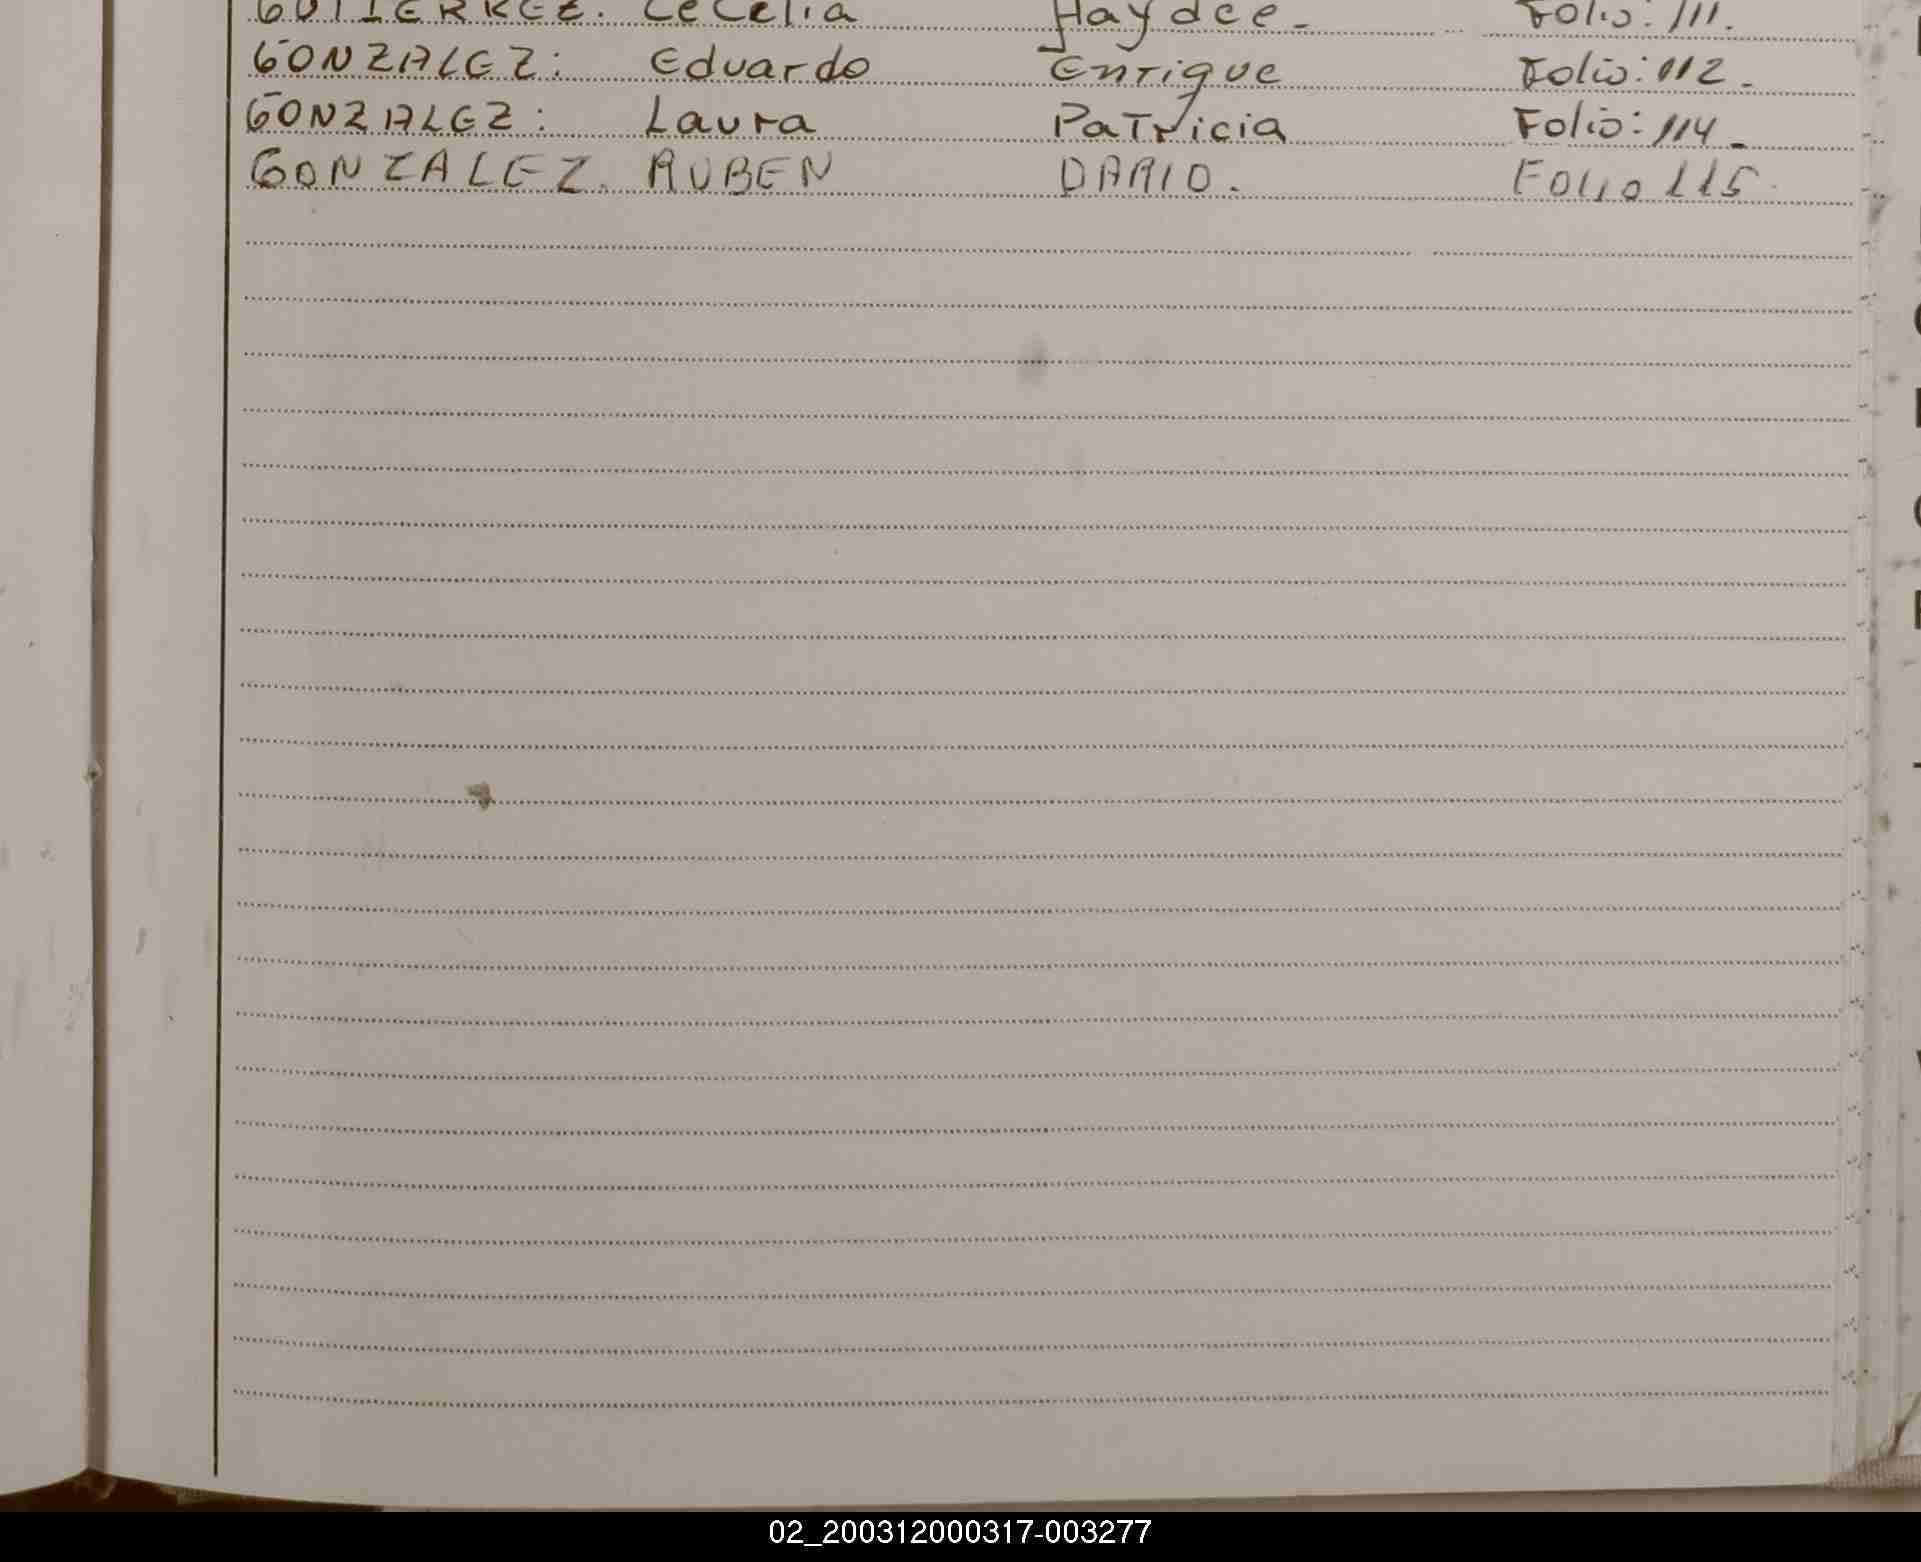 GUTIERREZ. CeCelia Haydee. Folio: 111.
GONZALEZ: Eduardo Enrique Folio: 112.
GONZALEZ: Laura Patricia Folio: 114.
GONZALEZ. RUBEN DARIO. Folio 115.
02_200312000317-003277